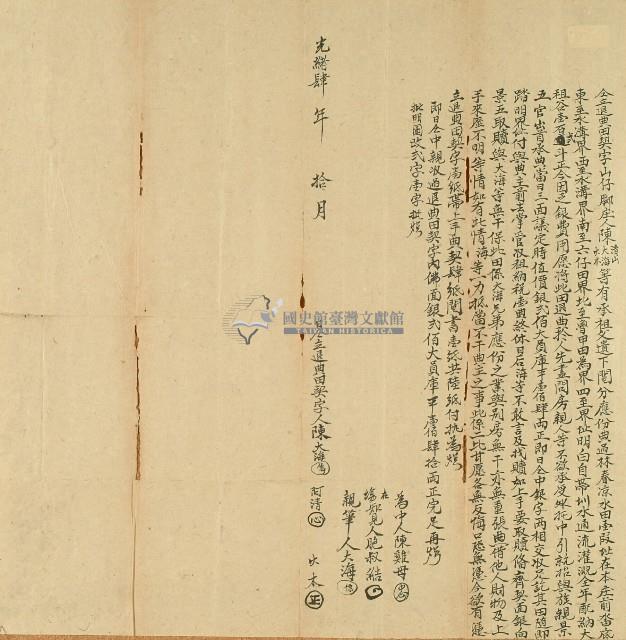 仝立退典田契字山仔脚庄人陳清山大海大木等有承祖父遺下鬮分應份典過林春涼水田壹段址在本庄前沓底
東至水溝界西至水溝界南至六仔田界北至曾甲田為界四至界址明白自帶圳水通流灌溉全年配納大
租谷壹石弍斗正今因乏銀費用愿將此田退典於人先盡問房親人等不欲承受外托中引就招與族親
五官出首承典當日三面議定時值價銀弍佰大員庫平壹佰肆拾兩正即日仝中銀字兩相交收足訖其田隨即
踏明界址付與典主前去掌管收租納稅壹典煞休日后海等不敢言及找贖如上手要取贖俻齊契面銀向
景五取贖與大海等無干保此田係大海兄弟應份之業與別房無干亦無重張典借他人財物及上
手來歷不明等情如有此情海等一力抵當不干典主之事此係二比甘愿各無反悔口恐無憑今欲有憑
立退典田契字壹紙帶上手典契肆紙鬮書壹紙共陸紙付執為炤
即日仝中親收過退典田契字內佛面銀弍佰大員庫平壹佰肆拾兩正完足再炤
批明圖改弍字壹字批炤
為中人陳雞母
在場知見人胞叔結
親筆人大海
光緒肆年拾月 日仝立退典田契字人陳大海
阿清
大木
國史館臺灣文獻館
TAIWAN HISTORICA